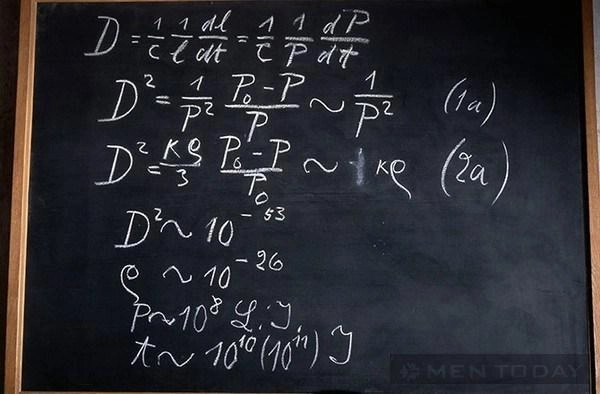 D = 1/c 1/l dl/dt = 1/c 1/P dP/dt
D² = 1/P² (P₀ - P)/P ~ 1/P² (1a)
D² = κρ/3 (P₀ - P)/P₀ ~ κρ (2a)
D² ~ 10⁻⁵³
ρ ~ 10⁻²⁶
P ~ 10⁸ L. J.
t ~ 10¹⁰ (10¹¹) J
MEN TODAY